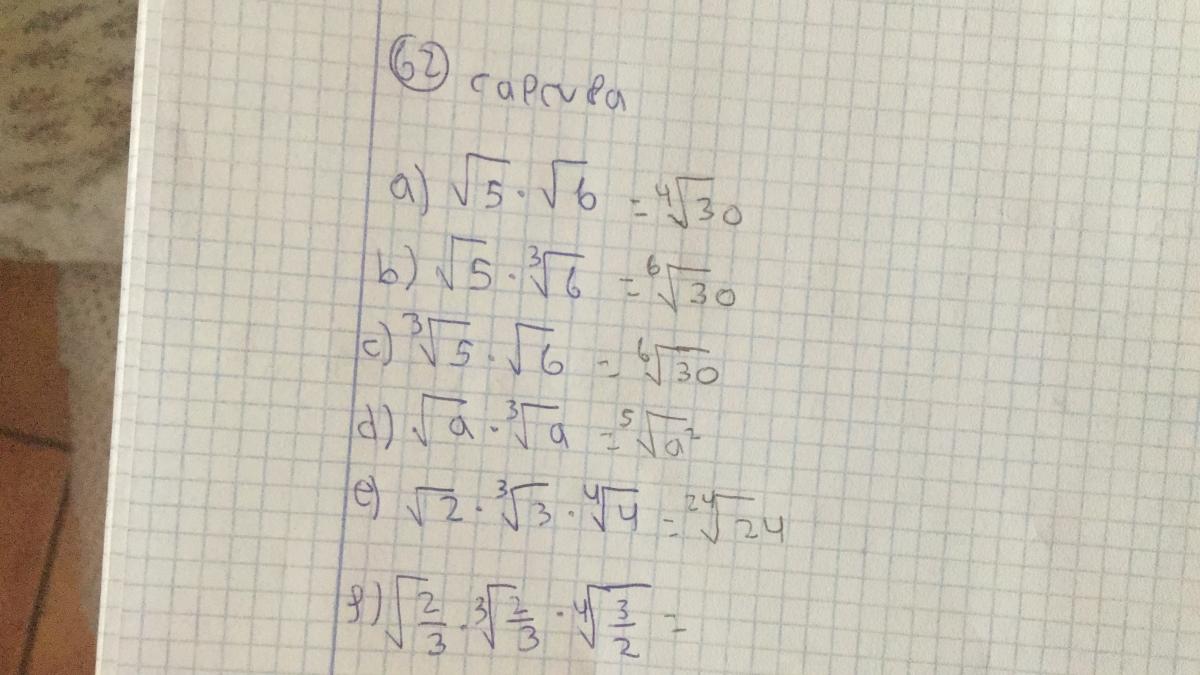 62 calcula
a) √5 · √6 = ⁴√30
b) √5 · ³√6 = ⁶√30
c) ³√5 · √6 = ⁶√30
d) √a · ³√a = ⁵√a²
e) √2 · ³√3 · ⁴√4 = ²⁴√24
f) √(2/3) · ³√(2/3) · ⁴√(3/2) =